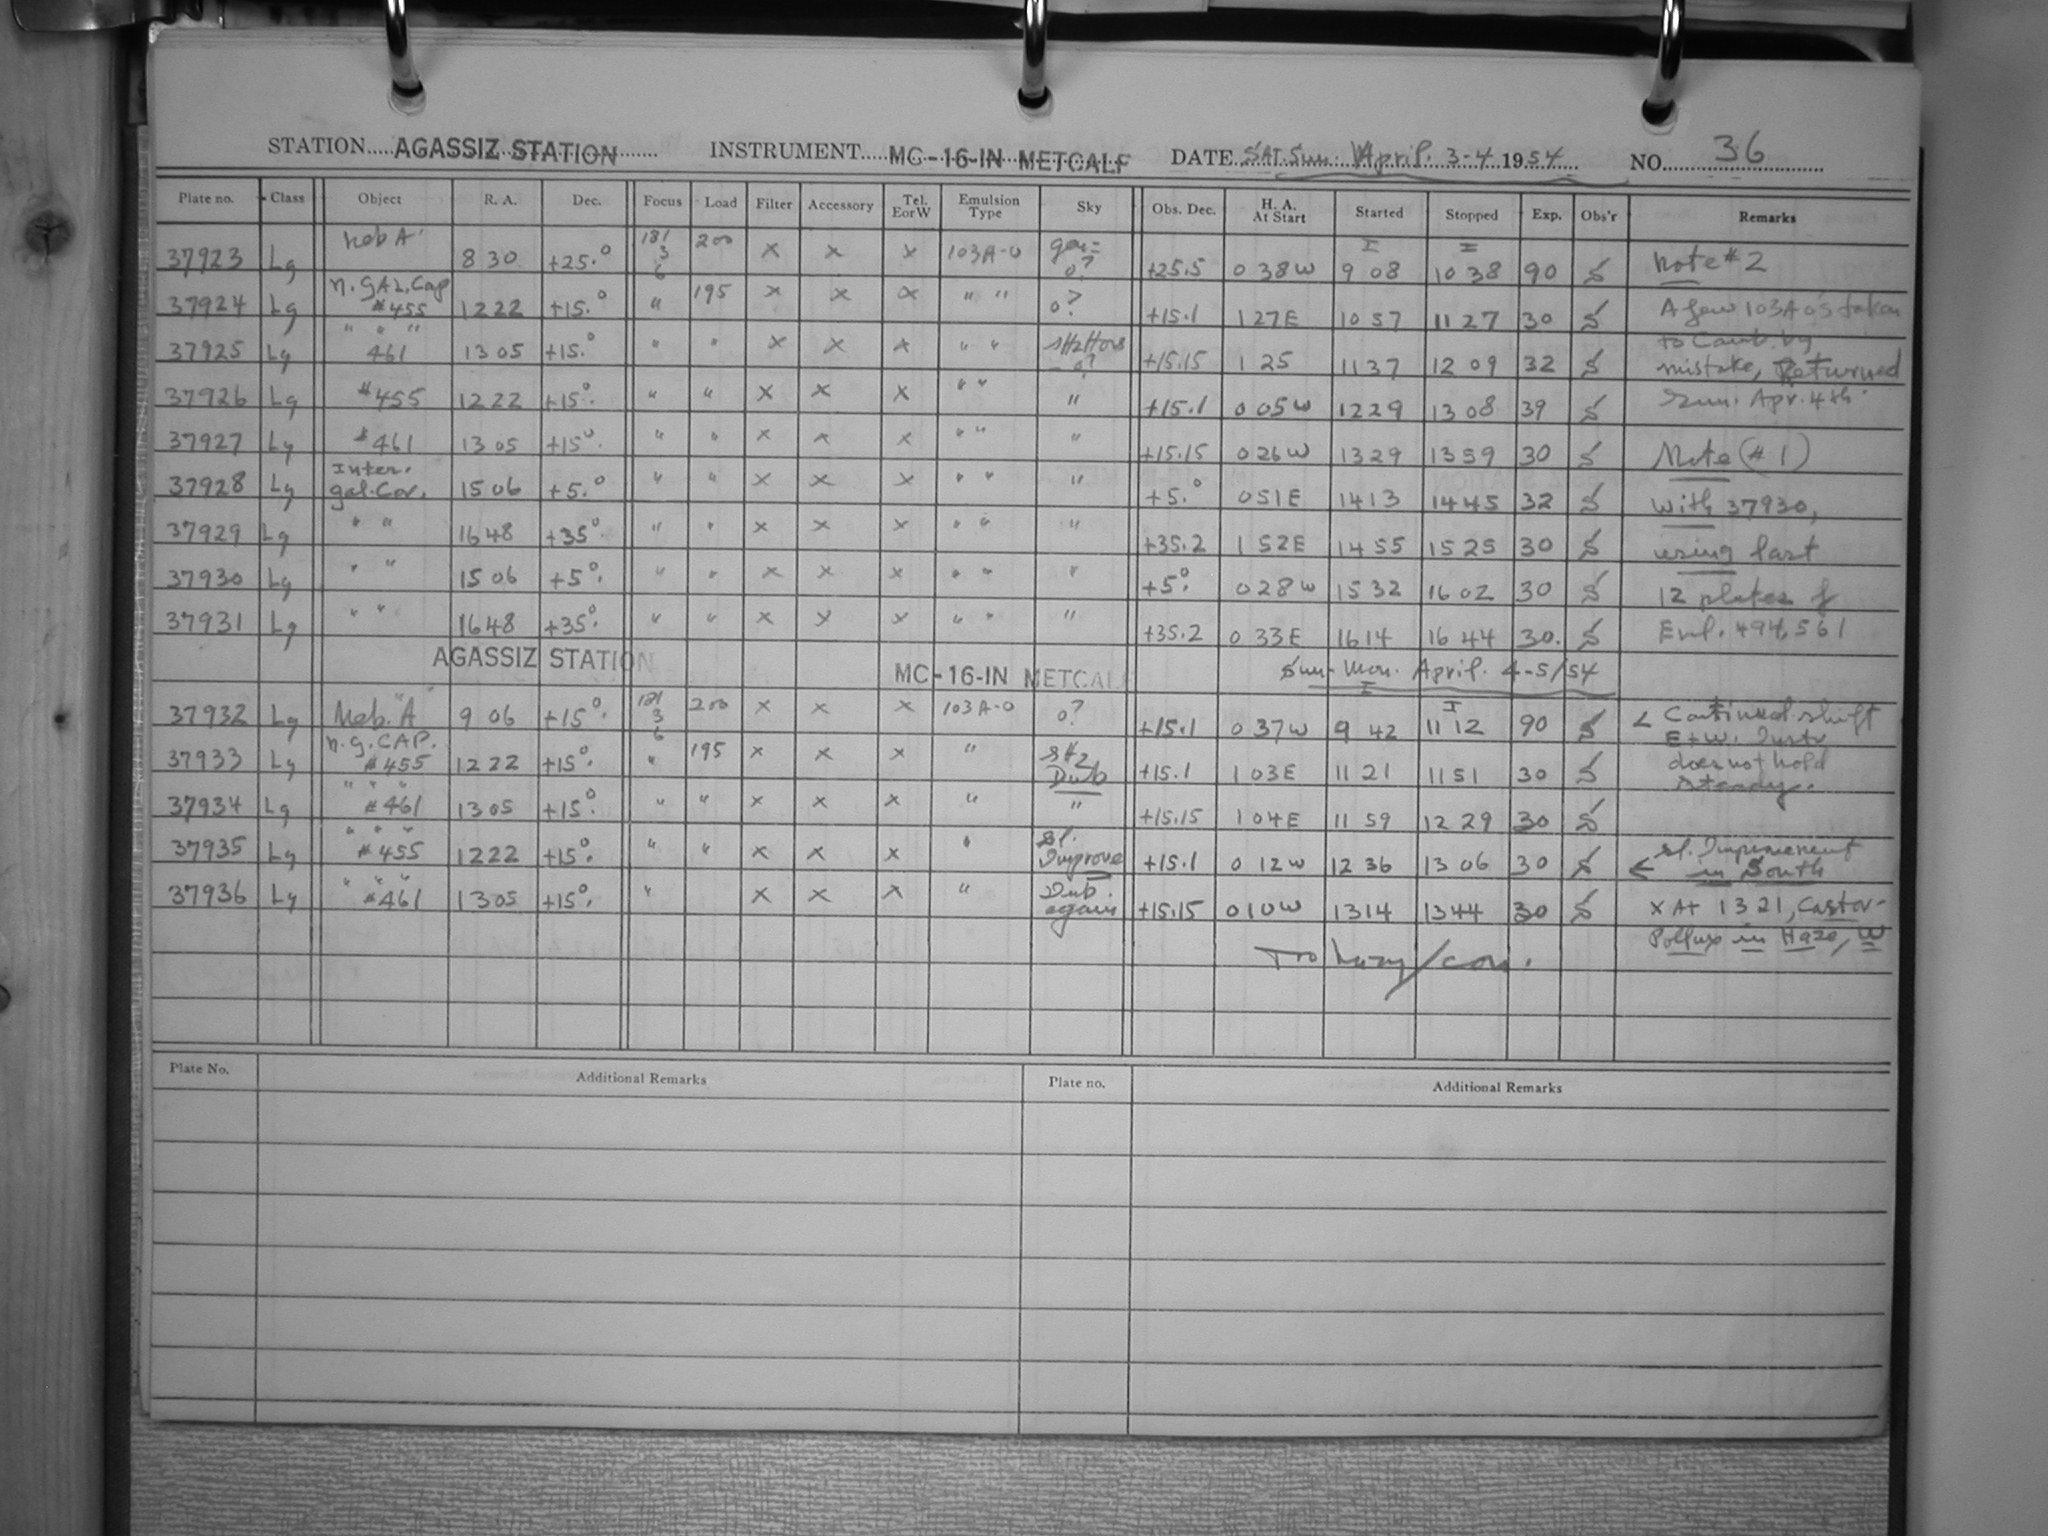 STATION.....AGASSIZ STATION....... INSTRUMENT.....MC-16-IN METCALF DATE SAT. Sun. April. 3-4 1954 NO. 36
Plate no. Class Object R. A. Dec. Focus Load Filter Accessory Tel. E or W Emulsion Type Sky Obs. Dec. H. A. At Start Started Stopped Exp. Obs'r Remarks
37923 Lg Neb A. 8 30 +25.° 181 3 6 200 x x x 103A-O o? +25.5 0 38W 9 08 10 38 90 Note #2
37924 Lg n. gAL. Cap #455 12 22 +15.° " 195 x x x " " o? +15.1 1 27E 10 57 11 27 30 A few 103A o's taken
37925 Lg " " " 461 13 05 +15.° " " x x x " " o? +15.15 1 25 11 37 12 09 32 to Camb. by mistake, Returned
37926 Lg #455 12 22 +15°. " " x x x " " " +15.1 0 05W 12 29 13 08 39 Sun. Apr. 4th.
37927 Lg #461 13 05 +15°. " " x x x " " " +15.15 0 26W 13 29 13 59 30 Note (#1)
37928 Lg Inter. gal. Cor. 15 06 +5.° " " x x x " " " +5.° 0 51E 14 13 14 45 32 with 37930,
37929 Lg " " 16 48 +35°. " " x x x " " " +35.2 1 52E 14 55 15 25 30 using last
37930 Lg " " 15 06 +5°. " " x x x " " " +5°. 0 28W 15 32 16 02 30 12 plates of
37931 Lg " " 16 48 +35°. " " x x x " " " +35.2 0 33E 16 14 16 44 30. Eml. 494,561
AGASSIZ STATION MC-16-IN METCALF Sun-Mon. April. 4-5/54
37932 Lg Neb. "A" 9 06 +15°. 181 3 6 200 x x x 103A-O o? +15.1 0 37W 9 42 11 12 90 < Continual shift E+W. Instr.
37933 Lg n.g. CAP. #455 12 22 +15°. " 195 x x x " Dub +15.1 1 03E 11 21 11 51 30 does not hold steady.
37934 Lg " " " #461 13 05 +15°. " " x x x " " +15.15 1 04E 11 59 12 29 30
37935 Lg " " " #455 12 22 +15°. " " x x x " Sl. Improve +15.1 0 12W 12 36 13 06 30 ← sl. Improvement in South
37936 Lg " " " #461 13 05 +15°. " x x x " Dub. again +15.15 0 10W 13 14 13 44 30 x At 13 21, Castor-
Pollux in Haze, W
Plate No. Additional Remarks Plate no. Additional Remarks